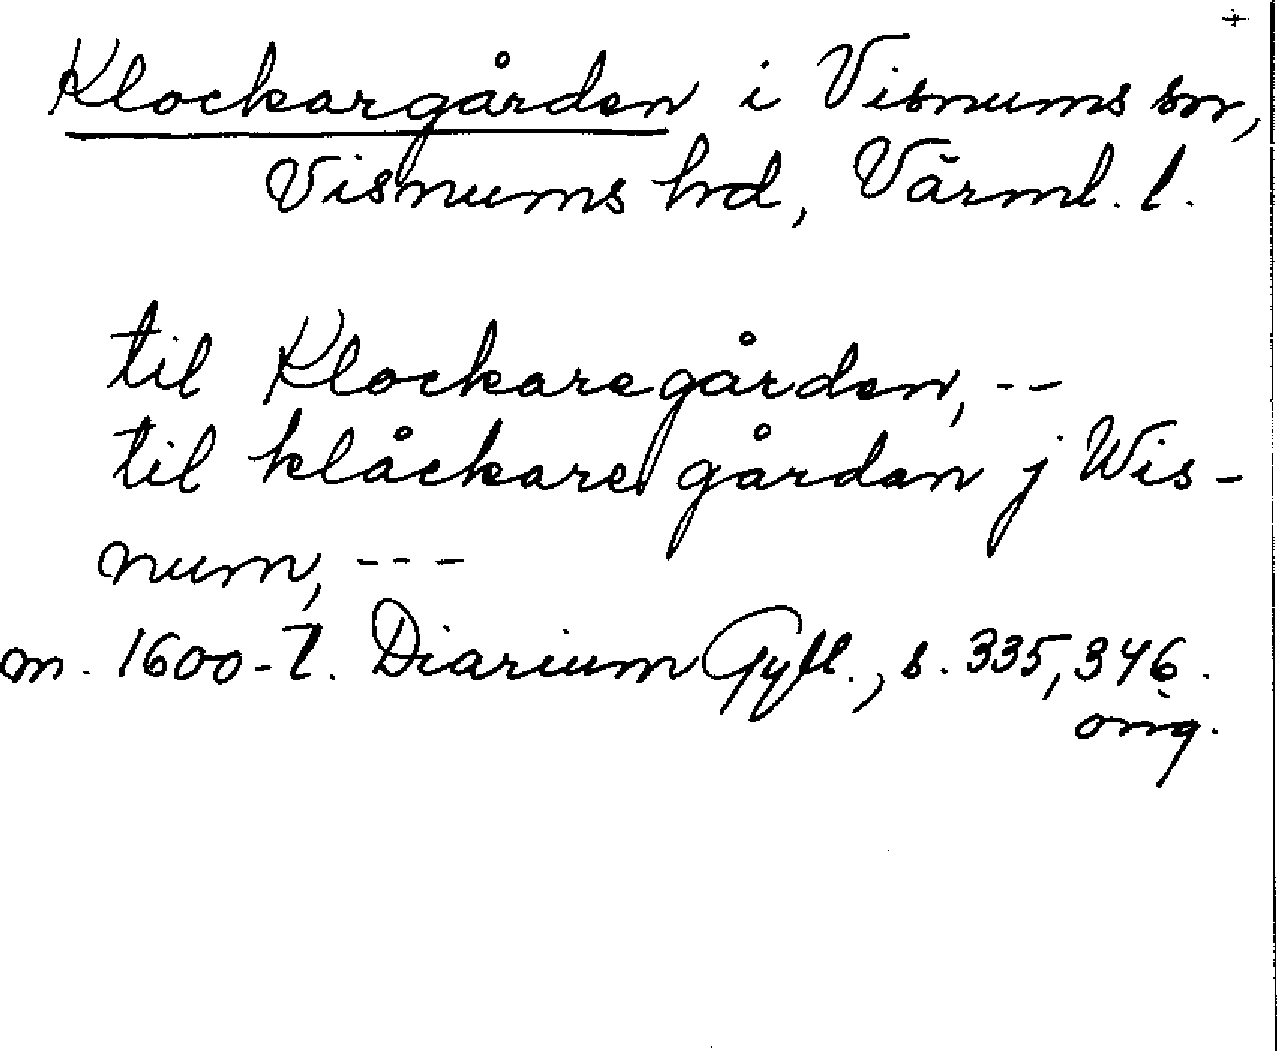 +
Klockargården i Visnums sn,
Visnums hd, Värml. l.
til Klockaregården, --
til klåckare gårdan j Wis-
num, ---
m. 1600-t. Diarium Gyll., s. 335, 346.
orig.